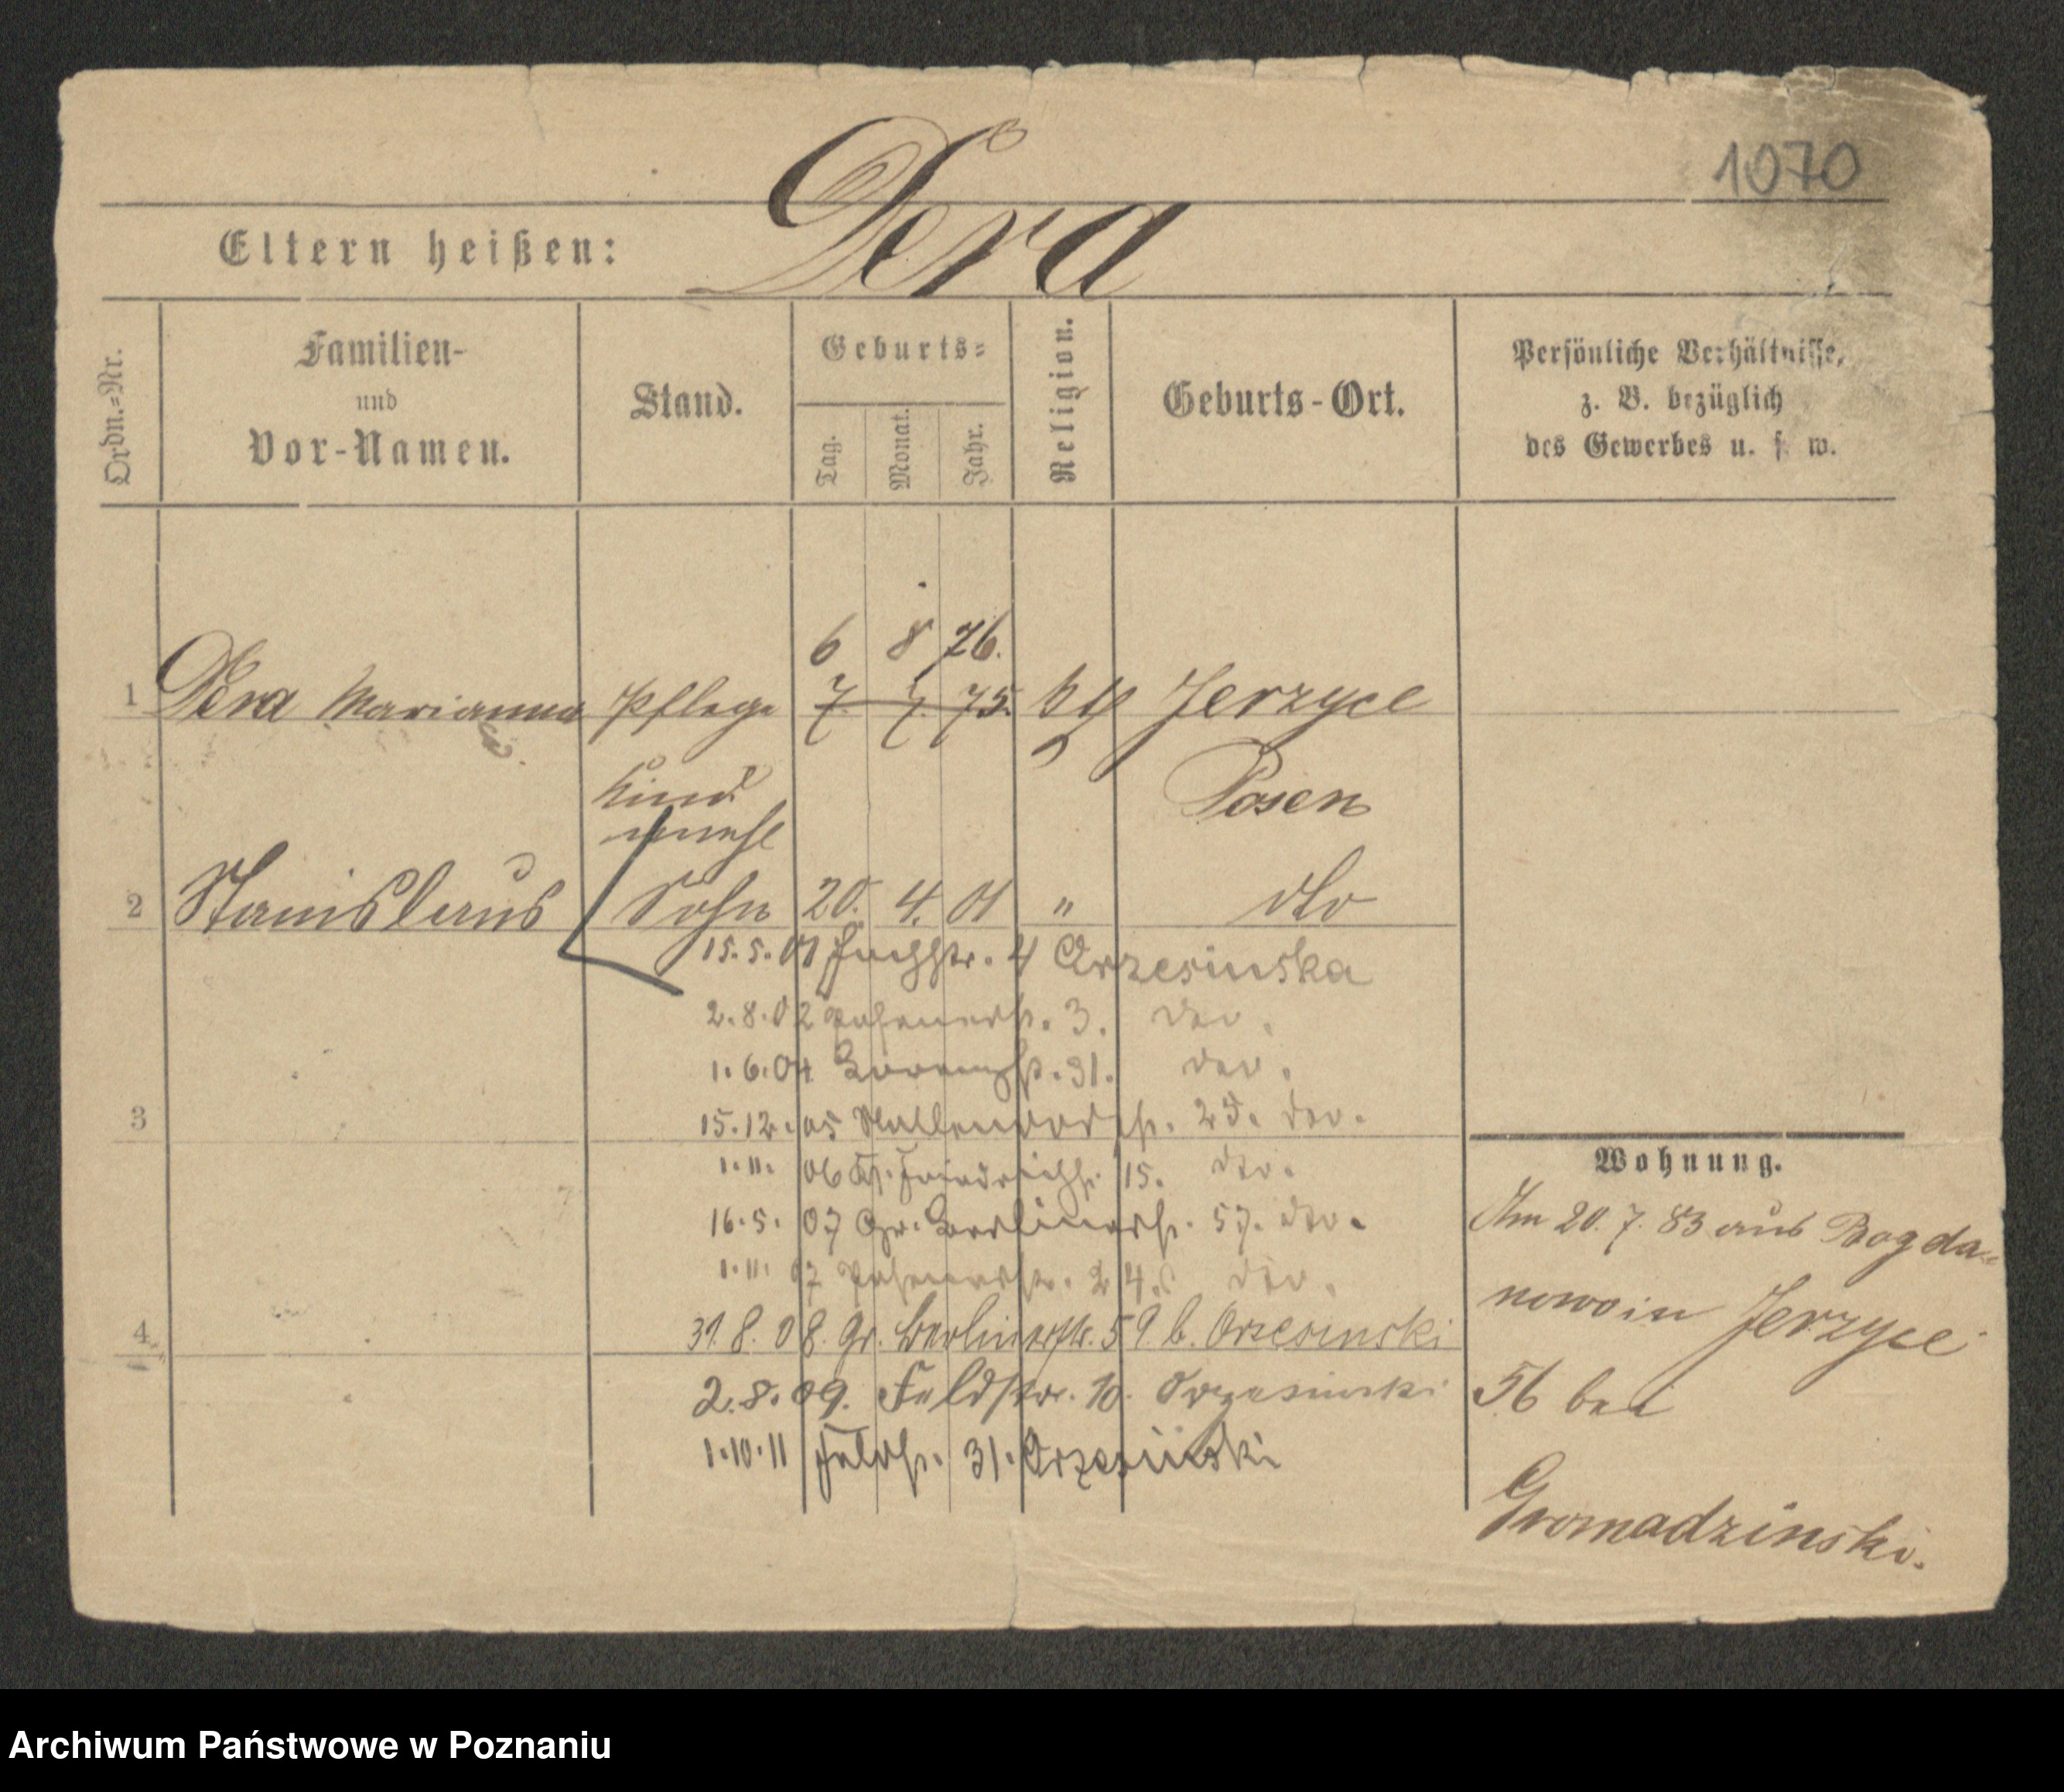 1070
Dera
Eltern heißen:
Ordn.=Nr.
Familien-
und
Vor-Namen.
Stand.
Geburts=
Tag.
Monat.
Jahr.
Religion.
Geburts-Ort.
Persönliche Verhältnisse,
z. B. bezüglich
des Gewerbes u. s. w.
6 8 76.
1 Dera Marianna Pflege 7. 7. 75. Jerzyce
Kind Posen
unehl
2 Stanislaus Sohn 20. 4. 01 " dto
15.5.01 4 Orzesinska
2.8.02 Posenerstr. 3. dto.
1.6.04 31. dto.
3
15.12.05 dto.
1.11.06 Kl. Friedrichstr. 15. dto.
16.5.07 Gr. Berlinerstr. 57. dto.
1.11.07 Posenerstr. 24. dto.
4
31.8.08. Gr. Berlinerstr. 59. b. Orzesinski
2.8.09. Feldstr. 10. Orzesinski
1.10.11 Feldstr. 31. Orzesinski
Wohnung.
Am 20. 7. 83 aus Bogda-
nowo in Jerzyce
56 bei
Gromadzinski.
Archiwum Państwowe w Poznaniu